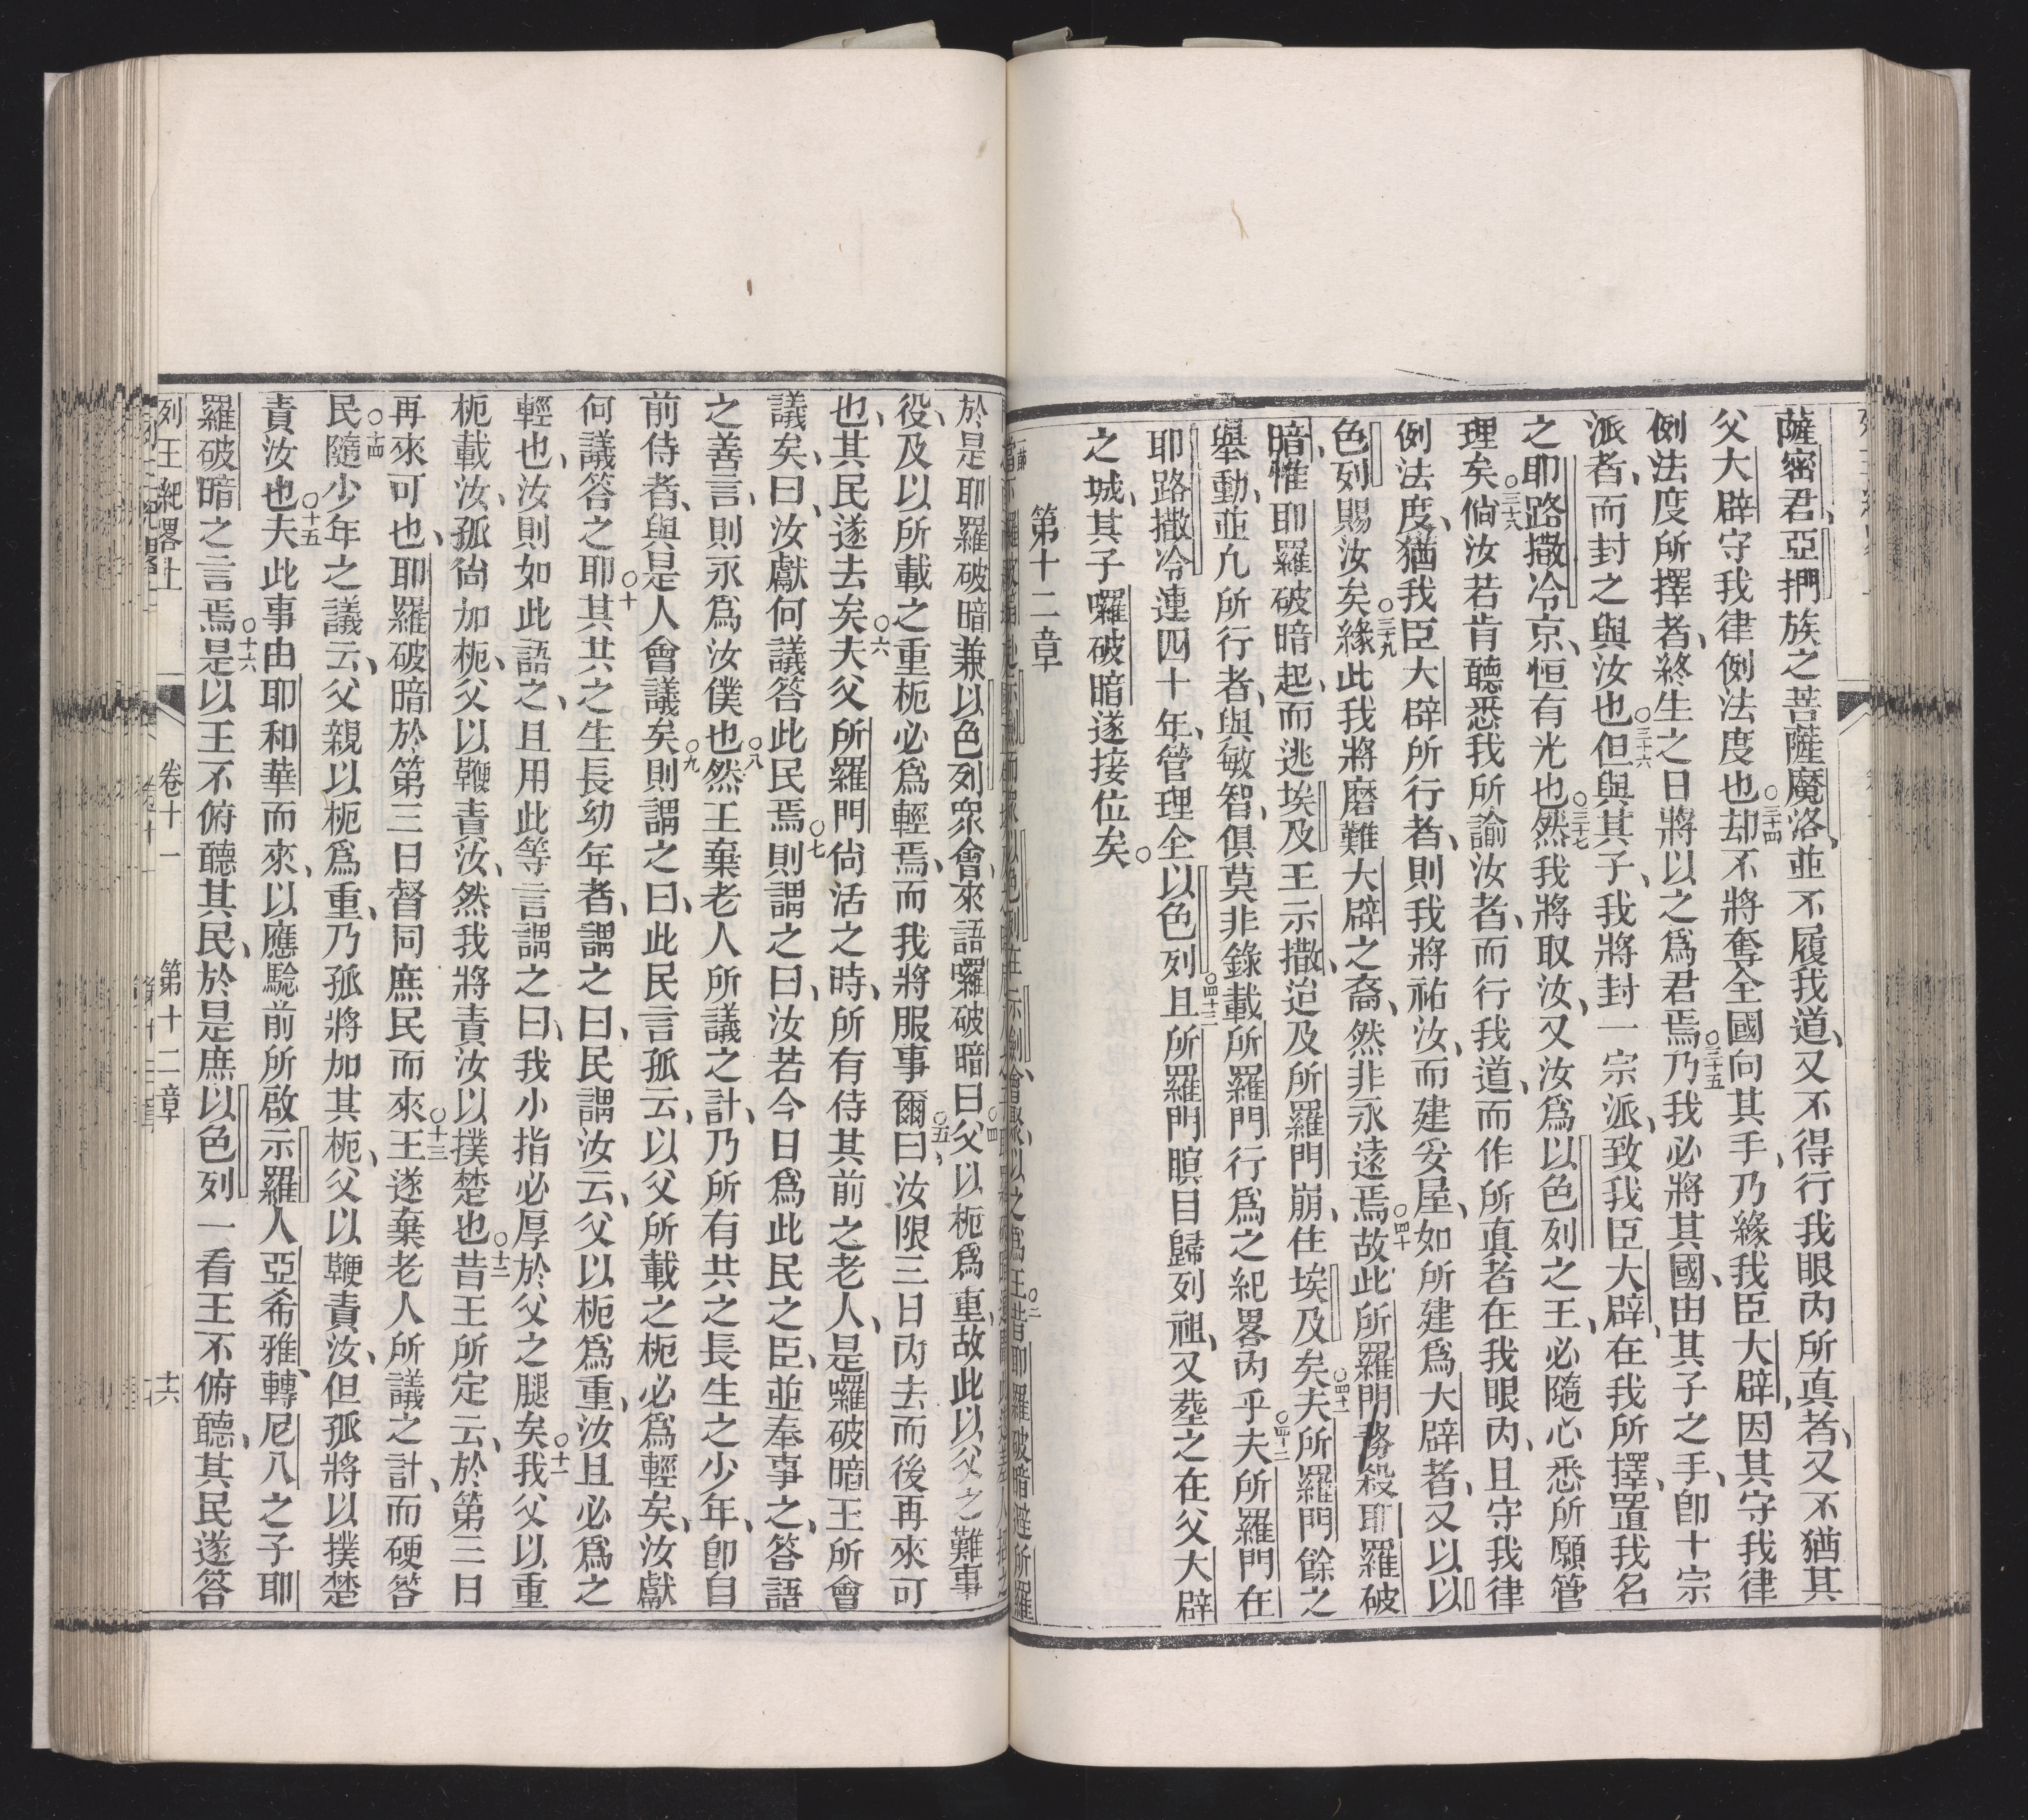 薩密君、亞捫族之菩薩魔洛、並不履我道、又不得行我眼內所真者、又不猶其
父大辟守我律例法度也○三十四却不將奪全國向其手、乃緣我臣大辟、因其守我律
例法度所擇者、終生之日將以之爲君焉○三十五乃我必將其國、由其子之手、卽十宗
派者、而封之與汝也○三十六但與其子、我將封一宗派、致我臣大辟、在我所擇、置我名
之耶路撒冷京、恒有光也○三十七然我將取汝、又汝爲以色列之王、必隨心悉所願管
理矣○三十八倘汝若肯聽悉我所諭汝者、而行我道、而作所真者在我眼內、且守我律
例法度、猶我臣大辟所行者、則我將祐汝、而建妥屋、如所建爲大辟者、又以以
色列賜汝矣○三十九緣此我將磨難大辟之裔、然非永遠焉○四十故此所羅門務殺耶羅破
暗、惟耶羅破暗起、而逃埃及王示撒、迨及所羅門崩、住埃及矣○四十一夫所羅門餘之
舉動、並凡所行者、與敏智、俱莫非錄載所羅門行爲之紀畧內乎○四十二夫所羅門在
耶路撒冷連四十年、管理全以色列○四十三且所羅門瞑目歸列祖、又塟之在父大辟
之城、其子囉破暗遂接位矣○
第十二章
於是耶羅破暗兼以色列眾會、來語囉破暗曰○四父以枙爲重、故此以父之難事
役、及以所載之重枙必爲輕焉、而我將服事爾○五曰、汝限三日內去而後再來可
也、其民遂去矣○六夫父所羅門尚活之時、所有侍其前之老人、是囉破暗王所會
議矣、曰、汝獻何議答此民焉○七則謂之曰、汝若今日爲此民之臣、並奉事之、答語
之善言、則永爲汝僕也○八然王棄老人所議之計、乃所有共之長生之少年、卽自
前侍者、與是人會議矣○九則謂之曰、此民言孤云、以父所載之枙必爲輕矣、汝獻
何議答之耶○十其共之生長幼年者、謂之曰、民謂汝云、父以枙爲重、汝且必爲之
輕也、汝則如此語之、且用此等言謂之曰、我小指必厚於父之腿矣○十一我父以重
枙載汝、孤尚加枙、父以鞭責汝、然我將責汝以撲楚也○十二昔王所定云、於第三日
再來可也、耶羅破暗於第三日督同庶民而來○十三王遂棄老人所議之計、而硬答
民○十四隨少年之議云、父親以枙爲重、乃孤將加其枙、父以鞭責汝、但孤將以撲楚
責汝也○十五夫此事由耶和華而來、以應驗前所啟示羅人亞希雅、轉尼八之子耶
羅破暗之言焉○十六是以王不俯聽其民、於是庶以色列一看王不俯聽、其民遂答
列王紀畧上　卷十一　第十二章　十六